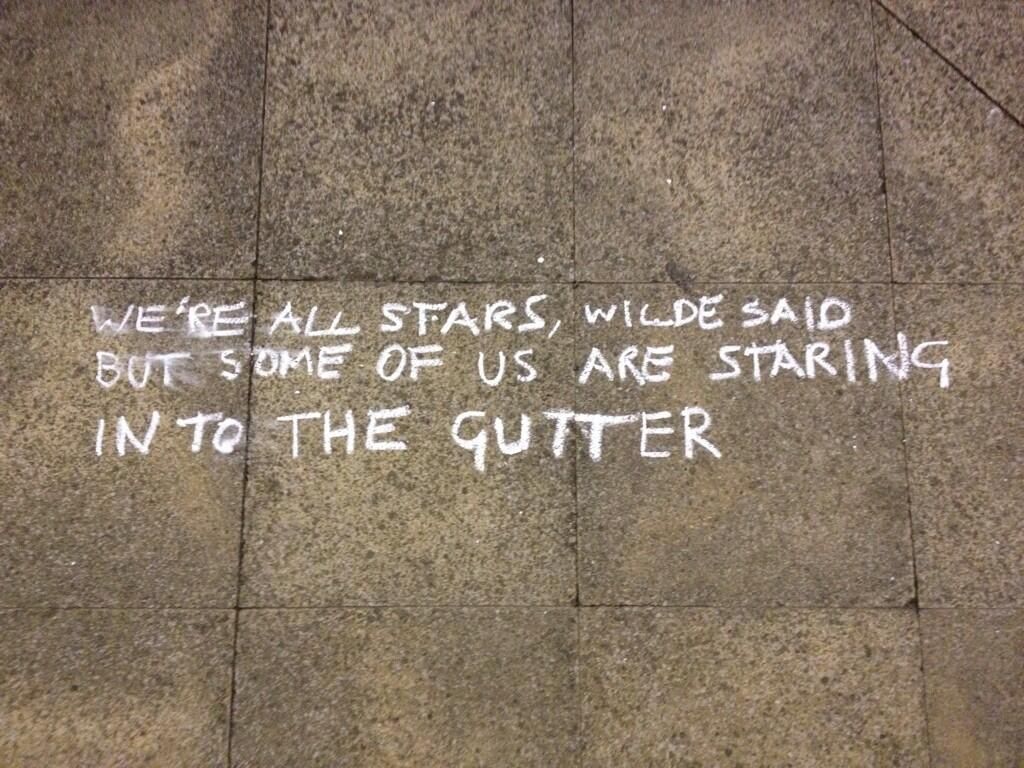 WE'RE ALL STARS, WILDE SAID
BUT SOME OF US ARE STARING
IN TO THE GUTTER